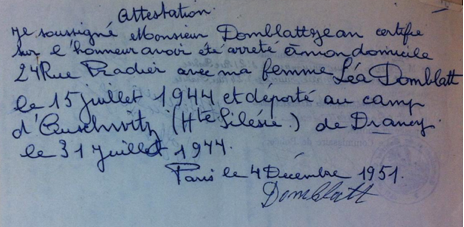 Attestation.
Je soussigné Monsieur Domblatt Jean certifie
sur l'honneur avoir été arreté à mon domicile
24 Rue Pradier avec ma femme Léa Domblatt
le 15 juillet 1944 et déporté au camp
d'Auschwitz (Hte Silésie.) de Drancy.
le 31 Juillet 1944.
Paris le 4 Décembre 1951.
Domblatt